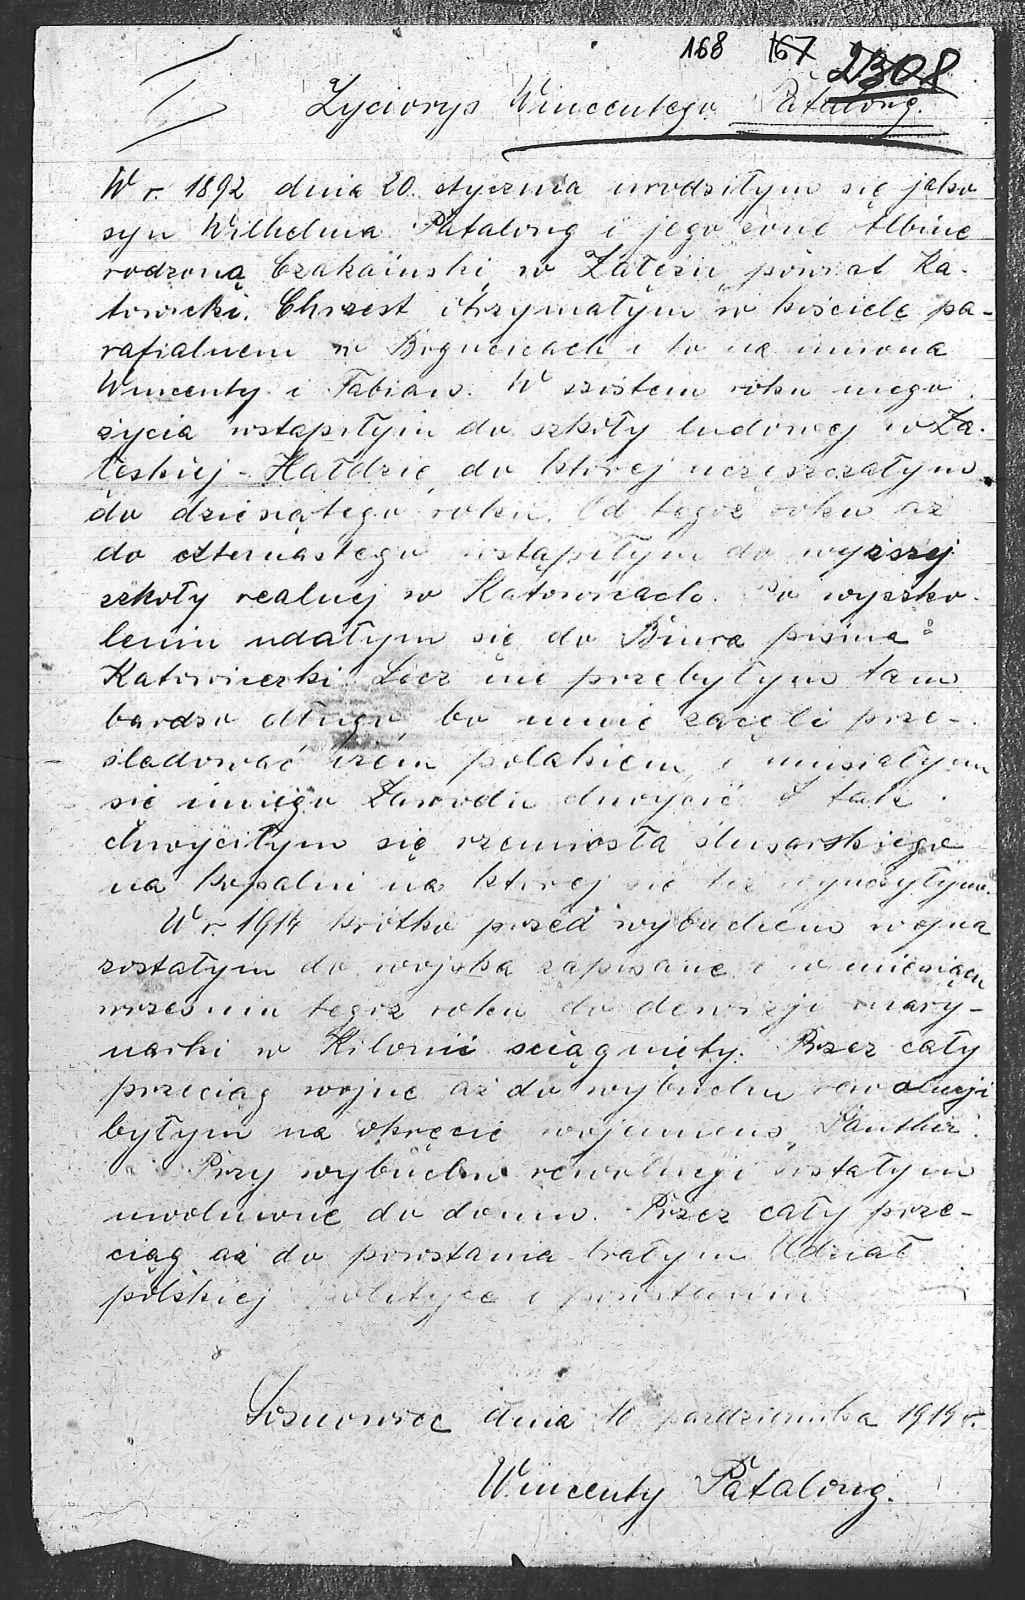 168 167 2308
I
Życiorys Wincentego Patalong.
W r. 1892 dnia 20. stycznia urodziłym się jako
syn Wilhelma Patalong i jego żonę Albinę
rodzoną Czakański w Załężu, powiat Ka-
towicki. Chrzest otrzymałym w kościele pa-
rafialnem w Bogucicach i to na imiona
Wincenty i Fabian. W szóstem roku mego
życia wstąpiłym do szkoły ludowej w Za-
łęskiej-Hałdzie, do ktorej uczęszczałym
do dziesiątego roku. Od tegoż roku aż
do czternastego wstąpiłym do wyższej
szkoły realnej w Katowicach. Po wyszko-
leniu udałym się do Biura pisma:
Katowiczerki. Lecz nie przebyłym tam
bardzo długo bo mnie zaczęli prze-
śladować żem polakiem, i musiałym
się innego Zawodu chwycić. I tak
chwyciłym się rzemiosła ślusarskiego
na kopalni na ktorej się też wyuczyłym.
W r. 1914 krótko przed wybuchem wojna
zostałym do wojska zapisane i w miesiącu
wrzesniu tegoż roku do dewizji mary-
narki w Kilonii sciągnięty. Przez cały
przeciąg wojnę aż do wybuchu rewolucji
byłym na okręcie wojennem „Panther".
Przy wybuchu rewolucji zostałym
uwolnione do domu. Przez cały prze-
ciąg aż do powstania brałym Udział
polskiej polityce i powstaniu
Sosnowiec dnia 10 pazdziernika 1919 r.
Wincenty Patalong.